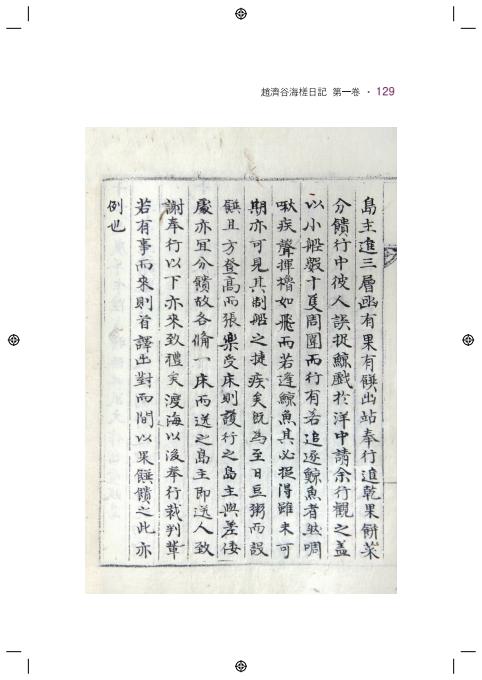 趙濟谷海槎日記 第一卷 · 129
島主進三層函有果有饌出站奉行進乾果餅菜
分饋行中彼人誤捉鯨戲於洋中請余行觀之蓋
以小船數十隻周圍而行有若追逐鯨魚者然啁
啾疾聲揮櫓如飛而若逢鯨魚其必捉得雖未可
期亦可見其制船之捷疾矣旣爲至日豆粥而設
饌且方登高而張樂受床則護行之島主與差倭
處亦宜分饋故各備一床而送之島主卽送人致
謝奉行以下亦來致禮矣渡海以後奉行裁判輩
若有事而來則首譯出對而間以果饌饋之此亦
例也